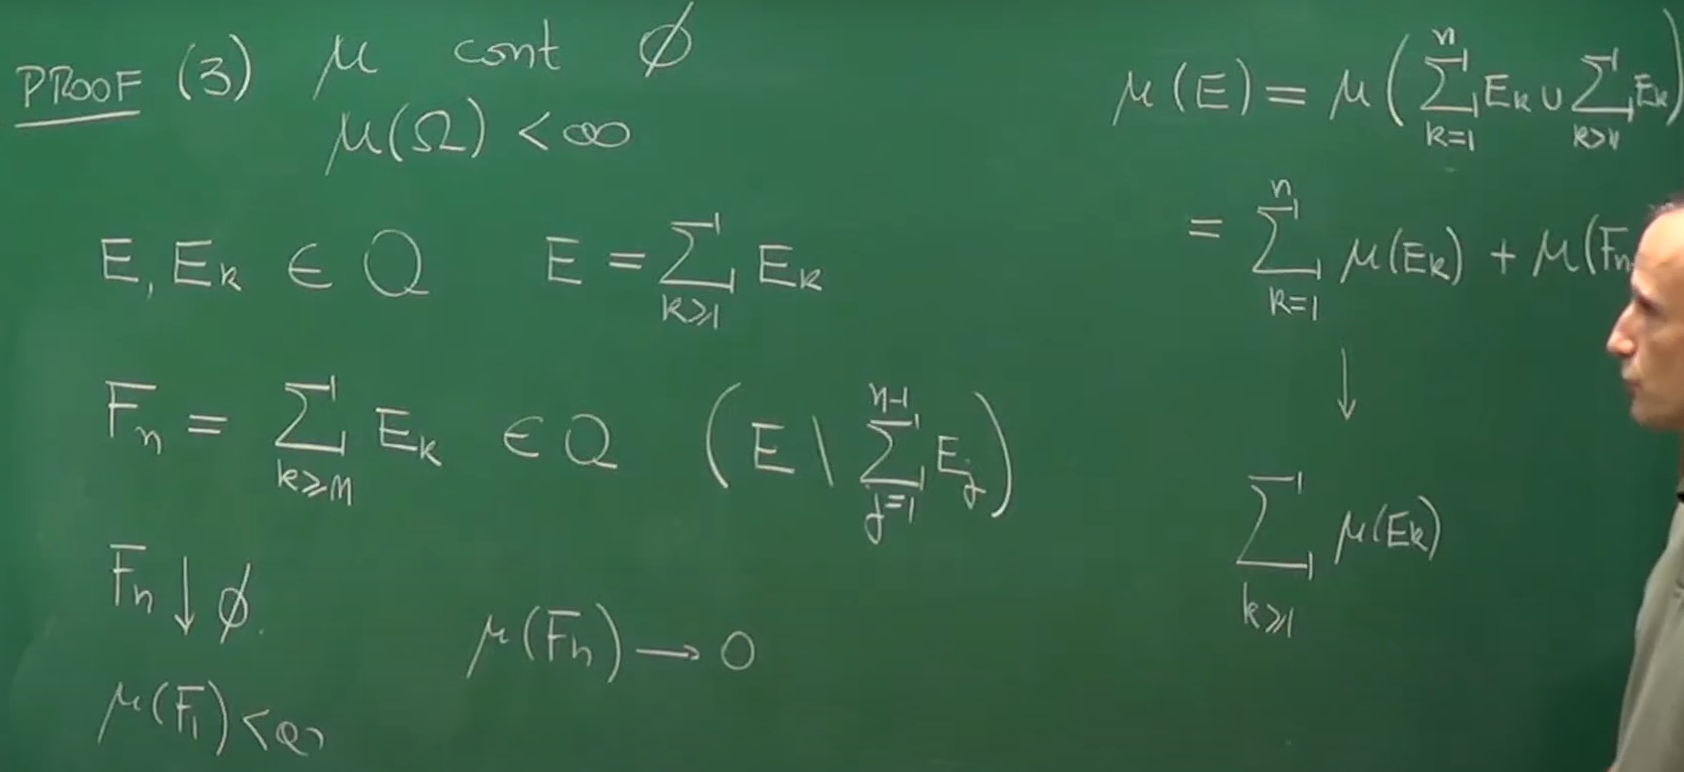 PROOF (3) μ cont ∅
μ(Ω) < ∞
E, E_k ∈ Q E = ∑_{k≥1} E_k
F_n = ∑_{k≥n} E_k ∈ Q (E \ ∑_{j=1}^{n-1} E_j)
F_n ↓ ∅.
μ(F_n) → 0
μ(F_1) < ∞
μ(E) = μ(∑_{k=1}^{n} E_k ∪ ∑_{k>n} E_k)
= ∑_{k=1}^{n} μ(E_k) + μ(F_n
↓
∑_{k≥1} μ(E_k)